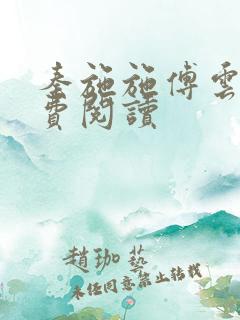 秦施施傅雲
費閱讀
趙珈藝
未经同意禁止转载